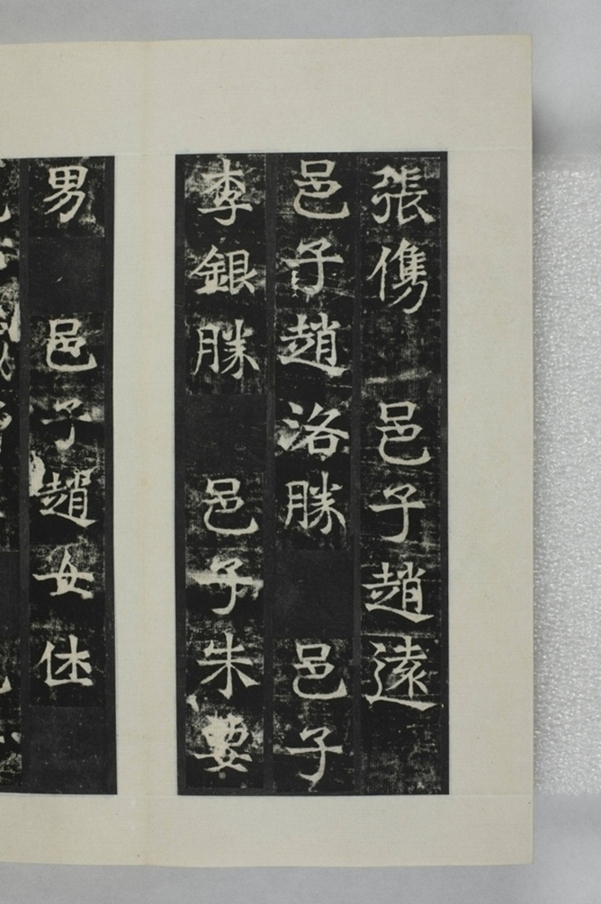 張儁 邑子趙遠
邑子趙洛勝 邑子
李銀勝 邑子朱要
男 邑子趙女